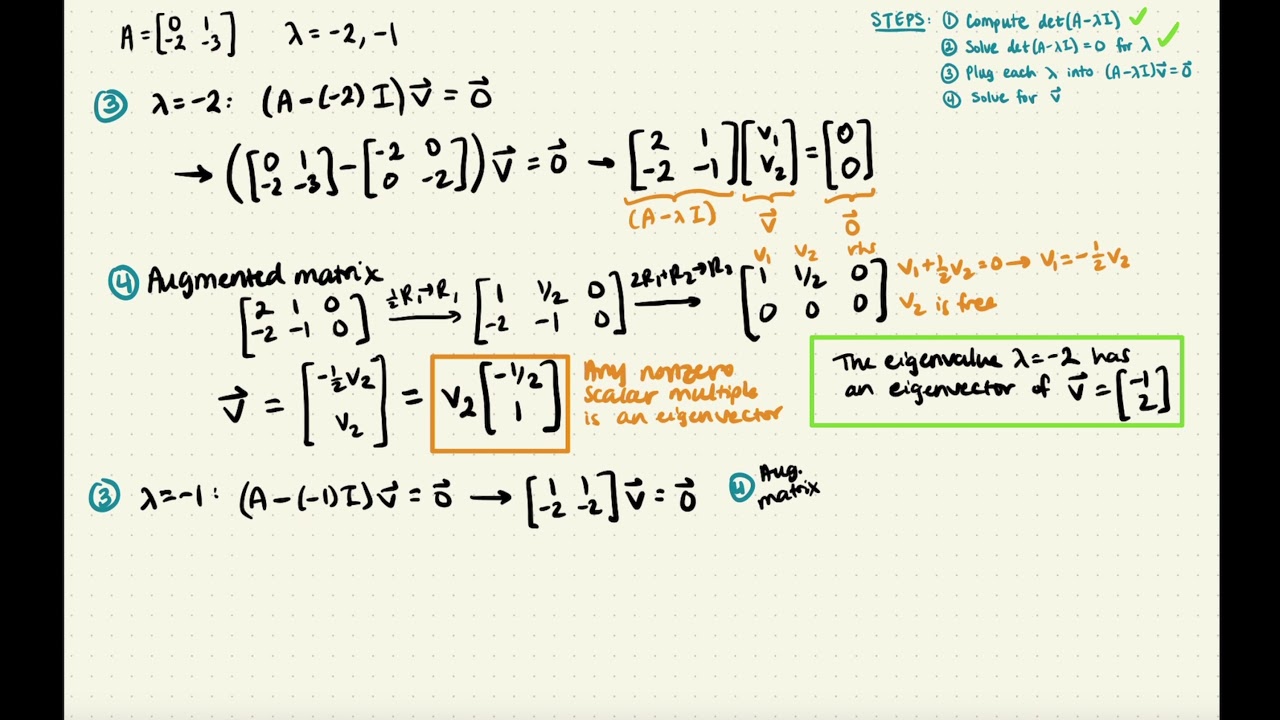 A = [0 1; -2 -3] λ = -2, -1
STEPS: ① Compute det(A-λI) ✓
② Solve det(A-λI) = 0 for λ ✓
③ Plug each λ into (A-λI)v⃗ = 0⃗
④ Solve for v⃗
③ λ = -2: (A-(-2)I)v⃗ = 0⃗
→ ([0 1; -2 -3] - [-2 0; 0 -2])v⃗ = 0⃗ → [2 1; -2 -1][v₁; v₂] = [0; 0]
(A-λI) v⃗ 0⃗
④ Augmented matrix
[2 1 0; -2 -1 0] ½R₁→R₁ [1 1/2 0; -2 -1 0] 2R₁+R₂→R₂ [1 1/2 0; 0 0 0]
v₁ v₂ rhs
v₁+½v₂=0 → v₁=-½v₂
v₂ is free
v⃗ = [-½v₂; v₂] = v₂[-1/2; 1]
Any nonzero
scalar multiple
is an eigenvector
The eigenvalue λ=-2 has
an eigenvector of v⃗ = [-1; 2]
③ λ=-1: (A-(-1)I)v⃗ = 0⃗ → [1 1; -2 -2]v⃗ = 0⃗
④ Aug.
matrix